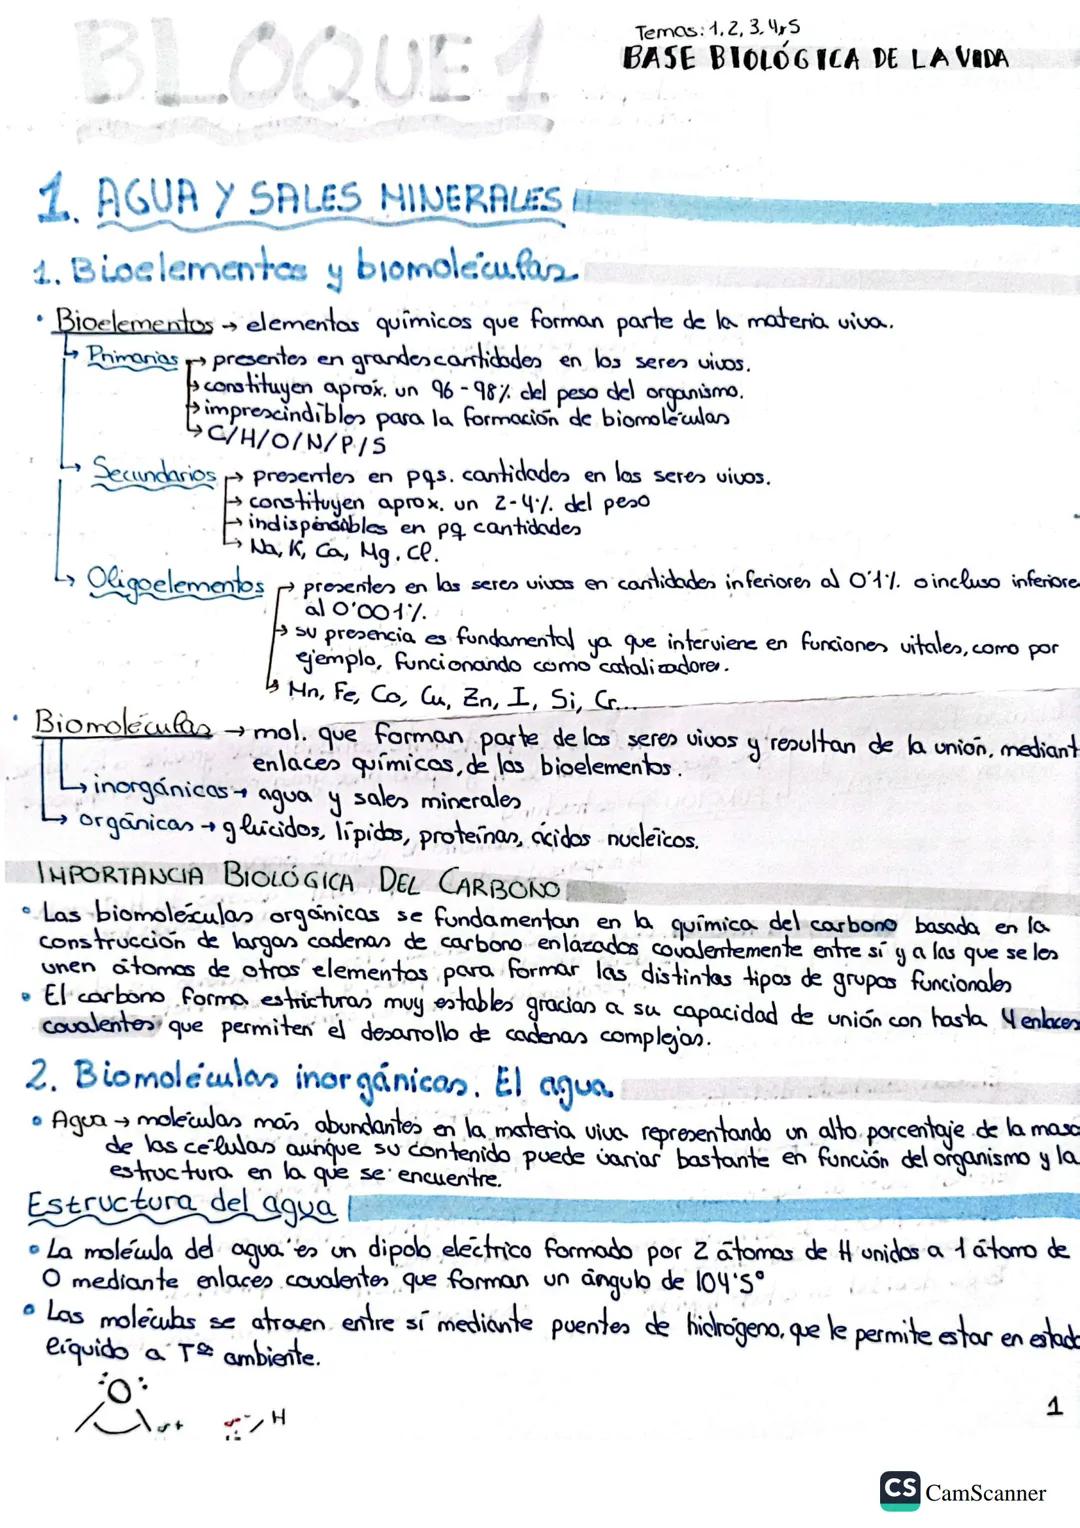 BLOQUE 1
Temas: 1, 2, 3, 4 y 5
BASE BIOLÓGICA DE LA VIDA
1. AGUA Y SALES MINERALES
1. Bioelementos y biomoléculas.
• Bioelementos → elementos químicos que forman parte de la materia viva.
↳ Primarios → presentes en grandes cantidades en los seres vivos.
↳ constituyen aprox. un 96-98% del peso del organismo.
↳ imprescindibles para la formación de biomoléculas
↳ C/H/O/N/P/S
↳ Secundarios → presentes en pqs. cantidades en los seres vivos.
→ constituyen aprox. un 2-4% del peso
→ indispensables en pq cantidades
↳ Na, K, Ca, Mg, Cl.
↳ Oligoelementos → presentes en los seres vivos en cantidades inferiores al 0'1% o incluso inferiore
al 0'001%.
→ su presencia es fundamental ya que interviene en funciones vitales, como por
ejemplo, funcionando como catalizadores.
↳ Mn, Fe, Co, Cu, Zn, I, Si, Cr...
• Biomoléculas → mol. que forman parte de los seres vivos y resultan de la unión, mediant
enlaces químicos, de los bioelementos.
↳ inorgánicas → agua y sales minerales
↳ orgánicas → glúcidos, lípidos, proteínas, ácidos nucléicos.
IMPORTANCIA BIOLÓGICA DEL CARBONO
• Las biomoléculas orgánicas se fundamentan en la química del carbono basada en la
construcción de largas cadenas de carbono enlazados covalentemente entre sí y a las que se les
unen átomos de otros elementos para formar las distintas tipos de grupos funcionales
• El carbono forma estructuras muy estables gracias a su capacidad de unión con hasta 4 enlaces
covalentes que permiten el desarrollo de cadenas complejas.
2. Biomoléculas inorgánicas. El agua.
• Agua → moléculas más abundantes en la materia viva representando un alto porcentaje de la masa
de las células aunque su contenido puede variar bastante en función del organismo y la
estructura en la que se encuentre.
Estructura del agua
• La molécula del agua es un dipolo eléctrico formado por 2 átomos de H unidos a 1 átomo de
O mediante enlaces covalentes que forman un ángulo de 104'5°
• Las moléculas se atraen entre sí mediante puentes de hidrógeno, que le permite estar en estado
líquido a Tª ambiente.
O
H
1
CS CamScanner